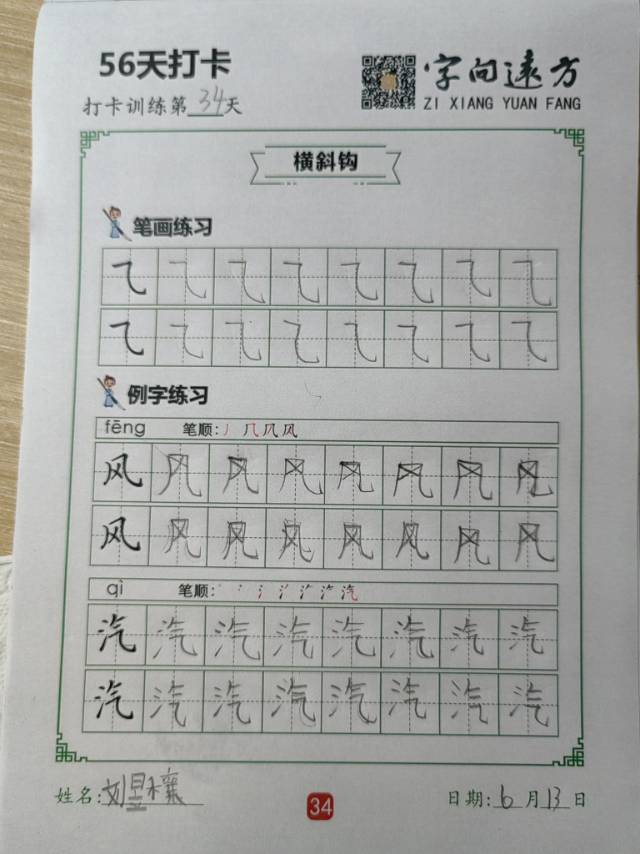 56天打卡
字向远方
打卡训练第34天
ZI XIANG YUAN FANG
横斜钩
笔画练习
⺄ ⺄ ⺄ ⺄ ⺄ ⺄ ⺄ ⺄
⺄ ⺄ ⺄ ⺄ ⺄ ⺄ ⺄ ⺄
例字练习
fēng 笔顺:
风 风 风 风 风 风 风 风
风 风 风 风 风 风 风 风
qì 笔顺:
汽 汽 汽 汽 汽 汽 汽 汽
汽 汽 汽 汽 汽 汽 汽 汽
姓名:刘
34
日期:6月13日